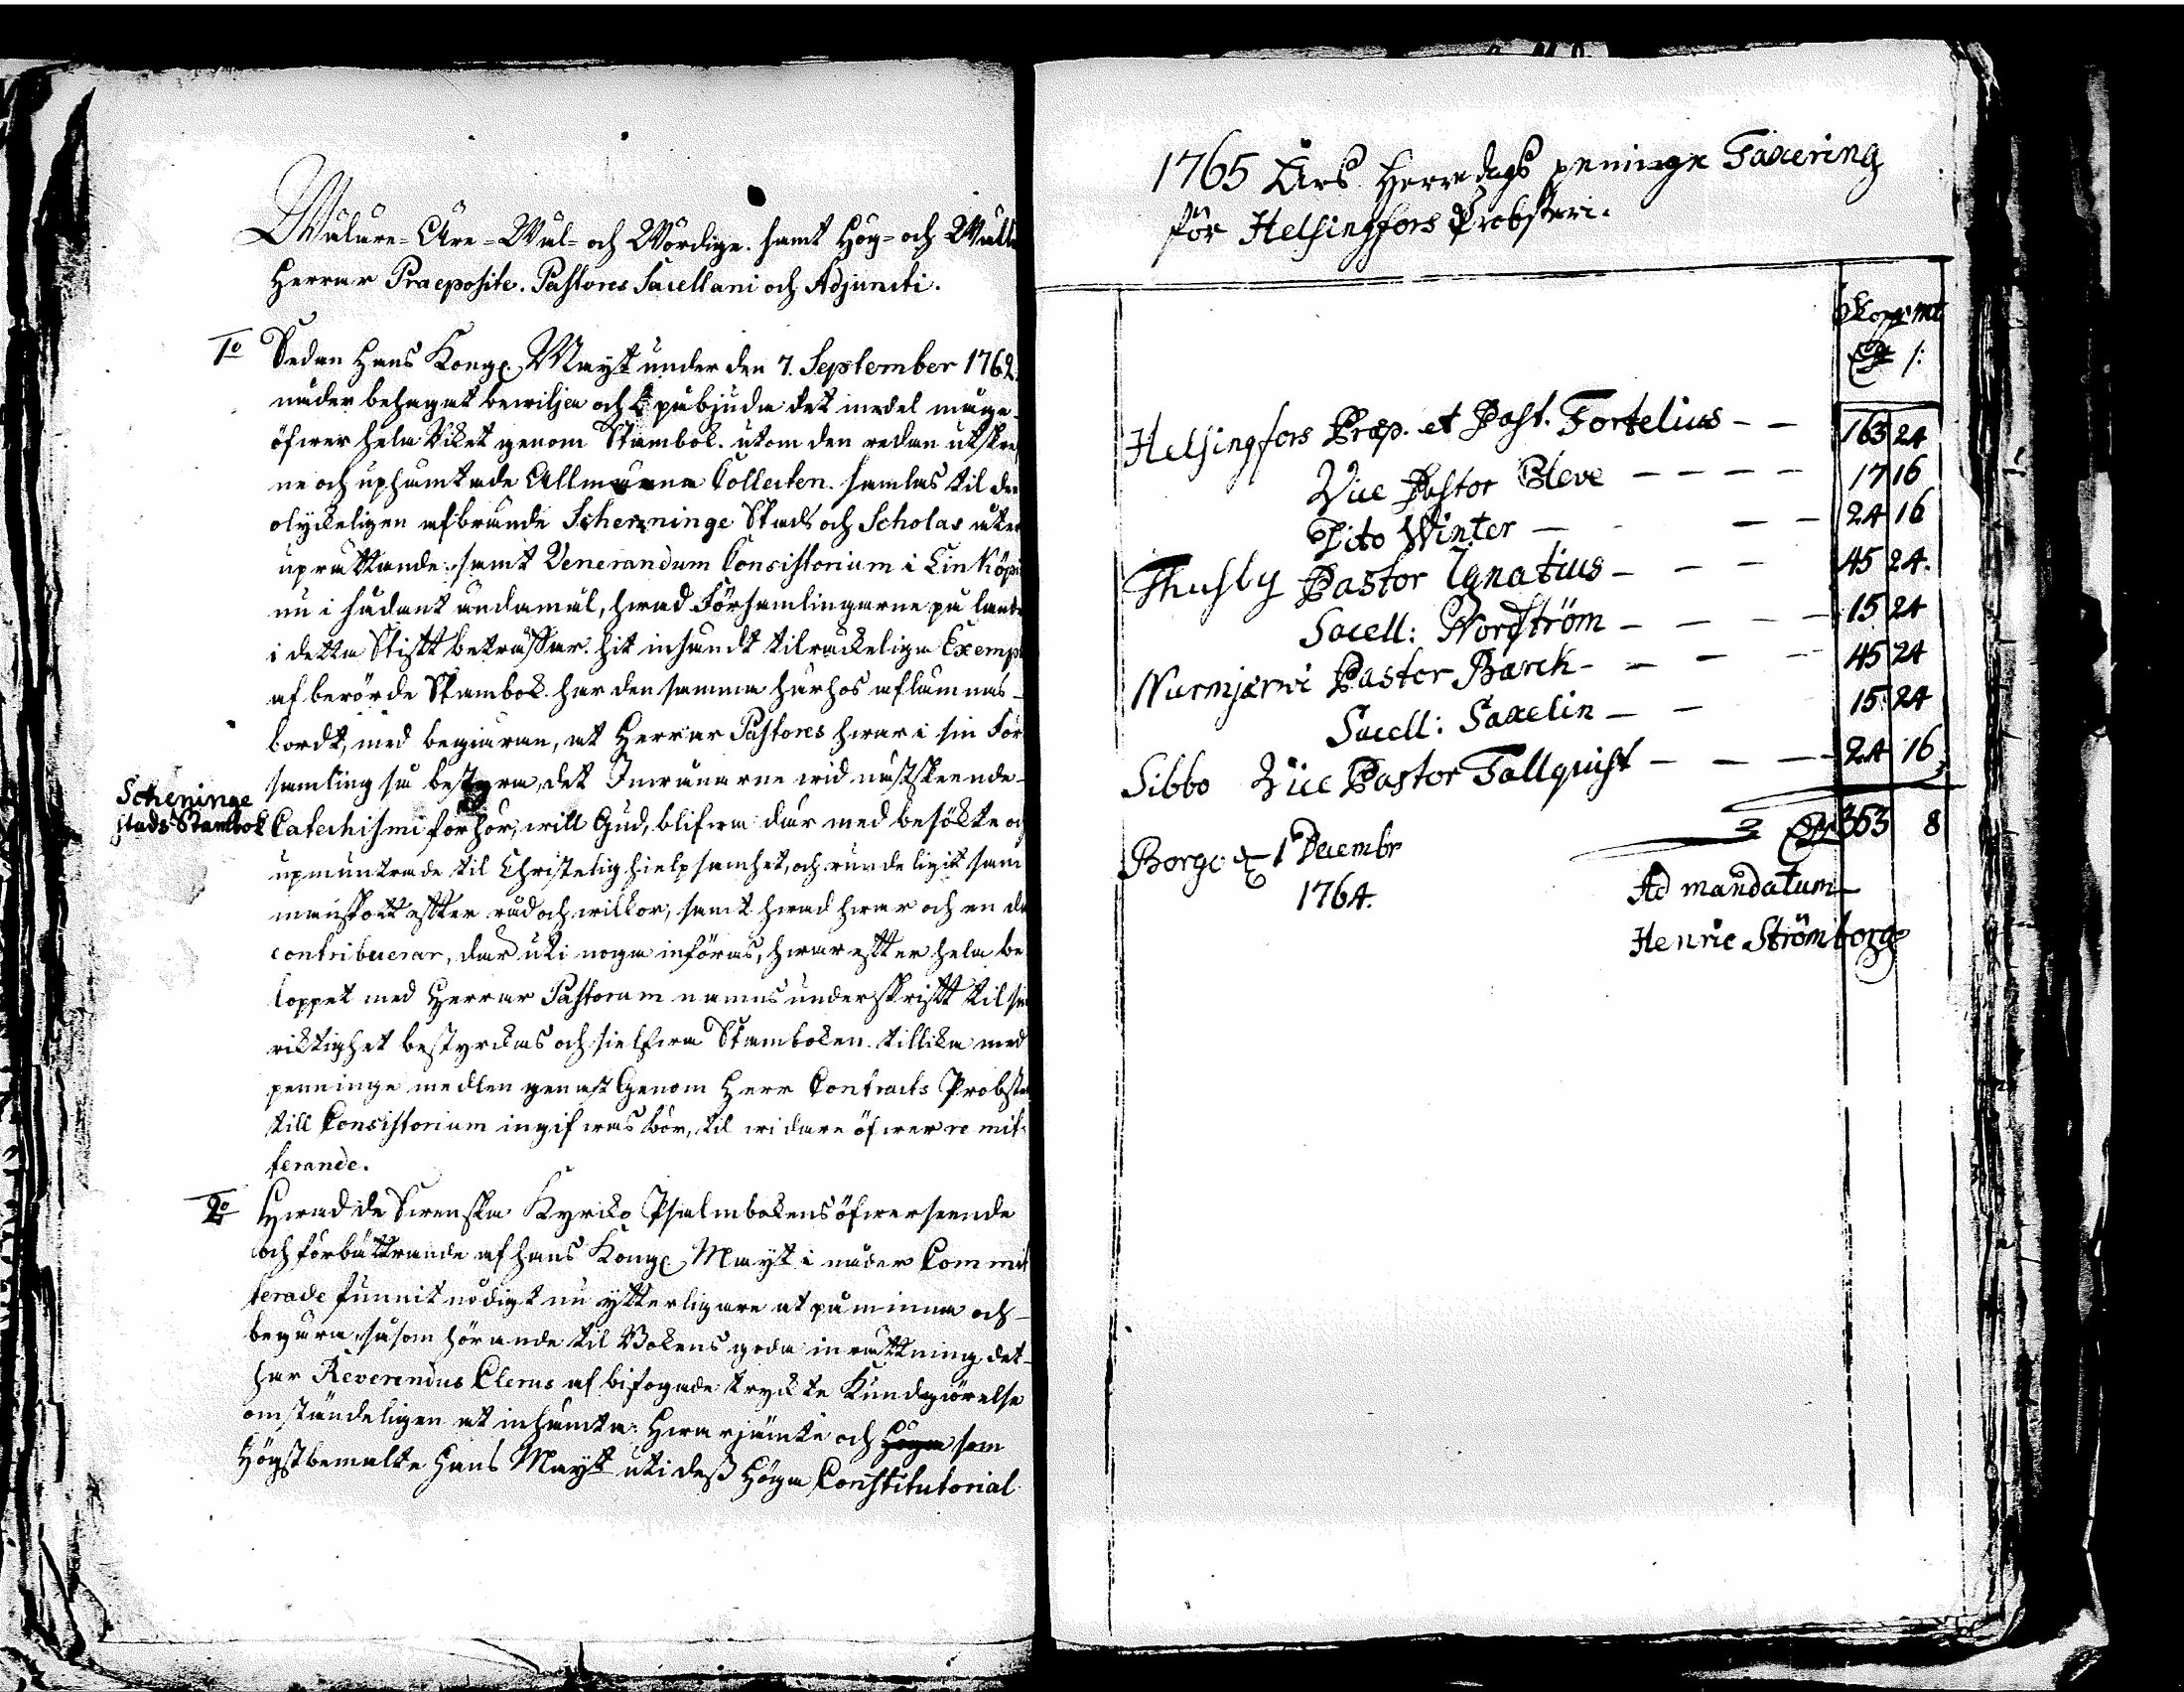 Wälure- Äre- Wäl- och Wördige. samt Hög- och Wäll
Herrar Praeposite. Pastores Sacellani och Adjuncti.
1o Sedan Hans Kongl. Mayt under den 7. September 1762.
nåder behagat bewiljea och påbjuda det medel måge
öfwer hela Riket genom Stambok. utom den redan utskre
ne och uphämtade Allmänna Collecten. samlas til den
olyckeligen afbrände Schenninge Stads och Scholas åter
uprättande. samt Venerandum Consistorium i Linköpi
nu i sådant ändamål, hwad Församlingarne på lande
i detta Stift beträffar. hit insändt tilräckeliga Exemp
af berörde Stambok. har den samma härhos aflämnas
bordt, med begiäran, at Herrar Pastores hwar i sin För
samling så bestyra, det Inwånarne wid nästskeende
Scheninge
stads Stambok
Catechismi förhör, will Gud, blifwa där med besökte oc
upmuntrade til Christelig hielpsamhet, och
manskott efter råd och willkor, samt hwad hwar och en der
contribuerar, där uti noga införas, hwar efter hela be
loppet med Herrar Pastorum namns underskrift til
riktighet bestyrckas och sielfwa Stamboken. tillika med
penninge medlen genast Genom Herr Contracts Probsten
till Consistorium ingifwas bör, til widare öfwer remit-
terande.
2o Hwad de Swenska Kyrko Psalmbokens öfwerseende
och förbättrande af hans Kongl. Mayt i nåder Commit
terade funnit nödigt nu ytterligare at påminna och
begära, såsom hörande til Bokens goda inrättning det
har Reverendus Clerus af bifogade tryckte Kundgiörelse
omständeligen at inhämta: Hwarjämte och som
Högstbemälte Hans Mayt uti dess Höga Constitutorial
1765 Års Herredags peninge Taxering
för Helsingfors Probsteri.
Kopp:mt
Helsingfors Præp. et Past. Fortelius - - 163 24
Vice Pastor Bleve - - - - 17 16
Dito Winter - - - 24 16
Thusby Pastor Ignatius - - - 45 24.
Sacell: Nordström - - - - 15 24
Nurmjærvi Pastor Barck - - - - 45 24
Sacell: Saxelin - - 15 24
Sibbo Vice Pastor Tallquist - - - 24 16
353 8
Borgo d 1 Decembr
1764.
Ad mandatum
Henric Strömborg